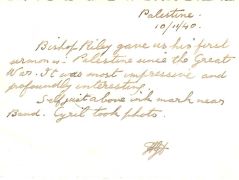 Palestine.
10/11/40.
Bishop Riley gave us his first
sermon in Palestine since the Great
War. It was most impressive and
profoundly interesting.
Self just above ink mark near
Band. Cyril took photo.